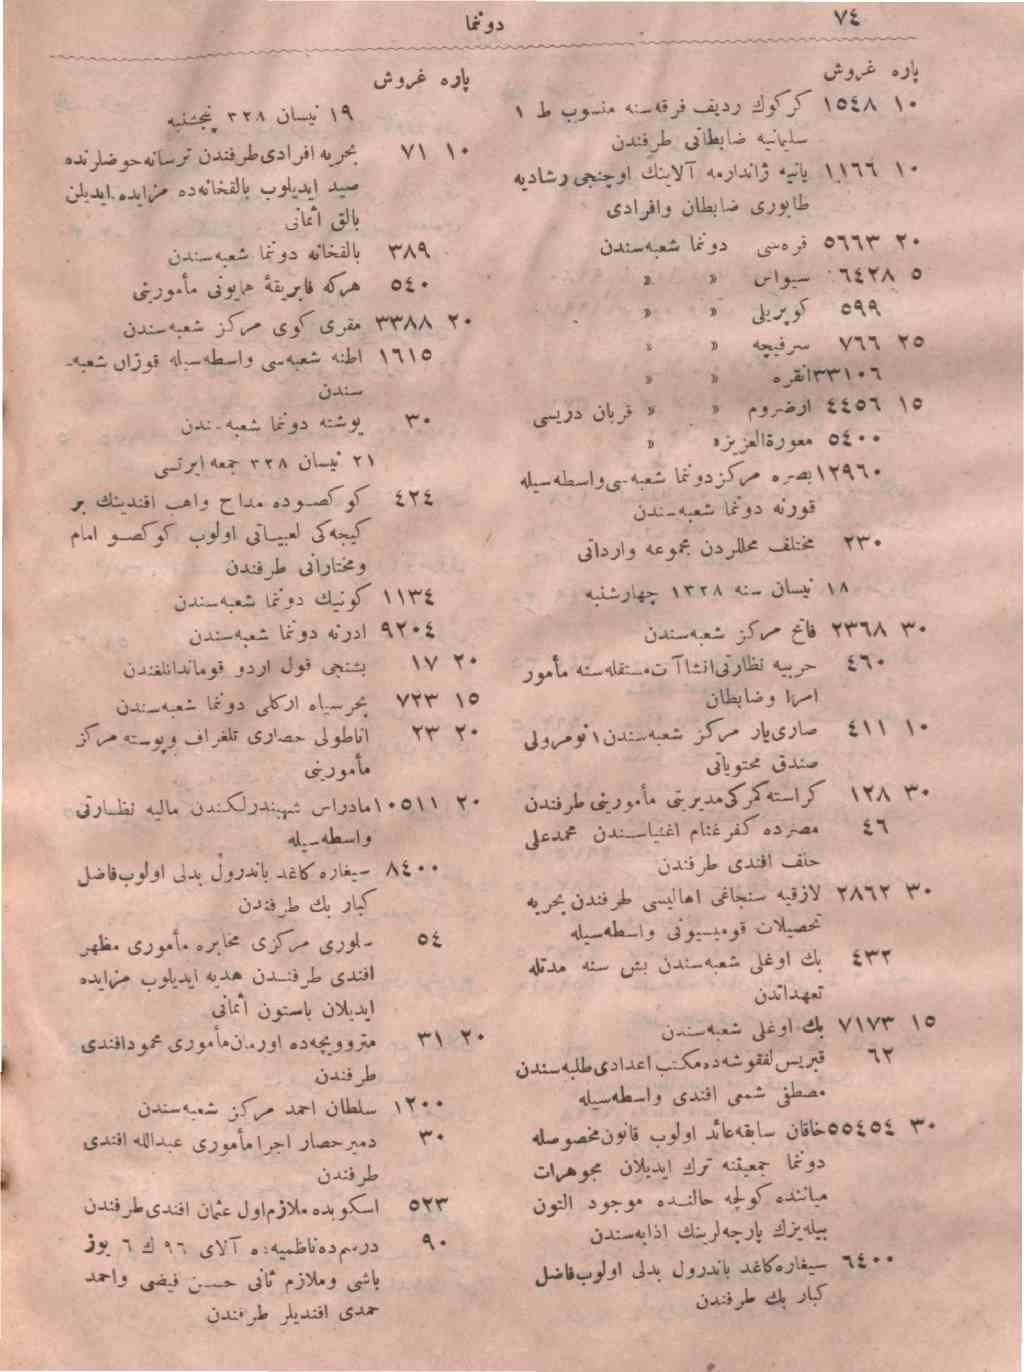 ٧٤
دوننما
پاره غروش
١٠ ١٥٤٨ كركوك رديف فرقه‌سنه منسوب ط ١
سليمانيه ضابطانى طرفندن
١٠ ١١٦٦ يانيه ژاندارمه آلاينك اوچنجى رشاديه
طابورى ضابطان وافرادى
٢٠ ٥٦٦٣ قره‌سى دوننما شعبه‌سندن
٥ ٦٤٢٨ سيواس » »
٥٩٩ كوپريلى » »
٢٥ ٧٦٦ سرفيچه » »
٣٣١٠٦ انقره » »
١٥ ٤٤٥٦ ارضروم » » قربان دريسى
٥٤٠٠ معمورة‌العزيزه »
١٢٩٦٠ بصره مركز دوننما شعبه‌سى واسطه‌سيله
قورنه دوننما شعبه‌سندن
٢٣٠ مختلف محللردن مجموعه وارداتى
١٨ نيسان سنه ١٣٢٨ چهارشنبه
٣٠ ٢٣٦٨ فاتح مركز شعبه‌سندن
٤٦٠ حربيه نظارتى انشاآت مستقله‌سنه مأمور
امرا وضابطان
١٠ ٤١١ صارى‌يار مركز شعبه‌سندن ١ نومرولى
صندق محتوياتى
٣٠ ١٢٨ كراسته كمركى مديريتى مأمورينى طرفندن
٤٦ مصرده كفرغنام اغنياسندن محمدعلى
خلف افندى طرفندن
٣٠ ٢٨٦٢ لازقيه سنجاغى اهاليسى طرفندن بحريه
تحصيلات قوميسيونى واسطه‌سيله
٤٣٢ بك اوغلى شعبه‌سندن بش سنه مدتله
تعهداتدن
١٥ ٧١٧٣ بك اوغلى شعبه‌سندن
٦٢ قبريس لفقوشه‌ده مكتب اعدادى طلبه‌سندن
مصطفى شمسى افندى واسطه‌سيله
٣٠ ٥٥٤٥٤ خاقان سابقه عائد اولوب قانون مخصوصله
دوننما جمعيتنه ترك ايديلان مجوهرات
مياننده كولچه حالنده موجود التون
بيله‌يزك پارچه‌لرينك اذابه‌سندن
٦٤٠٠ سيغاره كاغد باندرول بدلى اولوب فاضل
كبار بك طرفندن
پاره غروش
١٩ نيسان ٣٢٨ پنجشنبه
١٠ ٧١ بحريه افرادى طرفندن ترسانه حوضلرنده
صيد ايديلوب بالقخانه‌ده مزايده ايديلن
بالق اثمانى
٣٨٩ بالقخانه دوننما شعبه‌سندن
٥٤٠ هركه فابريقهٔ همايونى مأمورينى
٢٠ ٣٣٨٨ مقرى كوى مركز شعبه‌سندن
١٦١٥ اطنه شعبه‌سى واسطه‌سيله قوزان شعبه‌ـ
سندن
٣٠ يوشته دوننما شعبه‌سندن
٢١ نيسان ٣٢٨ جمعه ايرتسى
٤٢٤ كوكصوده مداح واهب افندينك بر
كيجه‌كى لعبياتى اولوب كوكصو امام
ومختارانى طرفندن
١١٣٤ كونيك دوننما شعبه‌سندن
٩٢٠٤ ادرنه دوننما شعبه‌سندن
٢٠ ١٧ بشنجى قول اردو قومانداندلغندن
١٥ ٧٢٣ بحرسياه اركلى دوننما شعبه‌سندن
٢٠ ٢٣ اناطولى حصارى تلغراف وپوسته مركز
مأمورينى
٢٠ ١٠٥١١ مادراس شهبندرلكندن ماليه نظارتى
واسطه‌سيله
٨٤٠٠ سيغاره كاغد باندرول بدلى اولوب فاضل
كبار بك طرفندن
٥٤ سلورى مركزى مخابره مأمورى مظهر
افندى طرفندن هديه ايديلوب مزايده
ايديلان باستون اثمانى
٢٠ ٣١ متروويچه‌ده اورمان مأمورى محمودافندى
طرفندن
١٢٠٠ سلطان احمد مركز شعبه‌سندن
٣٠ دميرحصار اجرا مأمورى عبدالله افندى
طرفندن
٥٢٣ اسكوبده ملازم اول عثمان افندى طرفندن
٩٠ درسم‌ده ناظميه‌ده آلاى ٩٦ ك ٦ يوز
باشى وملازم ثانى حسن فيضى واحمد
حمدى افنديلر طرفندن